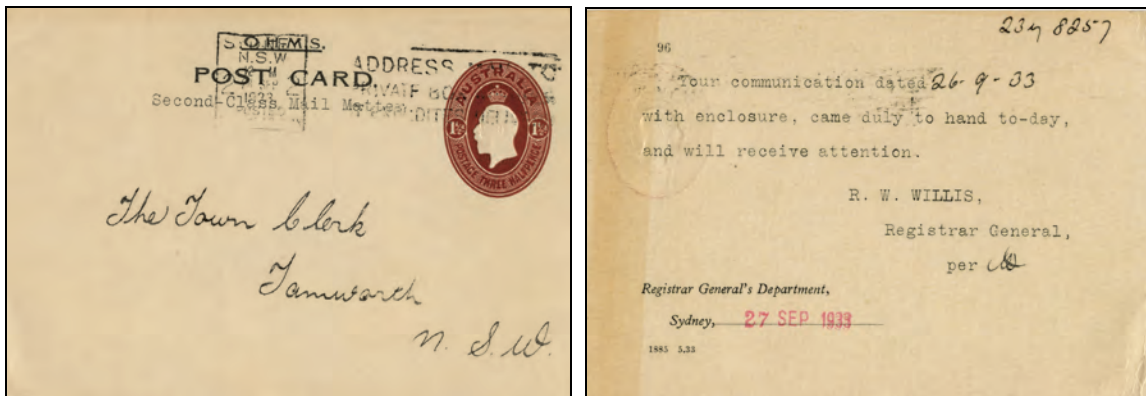 O.H.M.S.
POST CARD.
Second-Class Mail Matter
SYDNEY
N.S.W
1933
ADDRESS
PRIVATE BO
AUSTRALIA
1½ 1½
POSTAGE THREE HALFPENCE
The Town Clerk
Tamworth
N. S. W.
8257
96
Your communication dated 26-9-33
with enclosure, came duly to hand to-day,
and will receive attention.
R. W. WILLIS,
Registrar General,
per
Registrar General's Department,
Sydney, 27 SEP 1933
1885 5.33